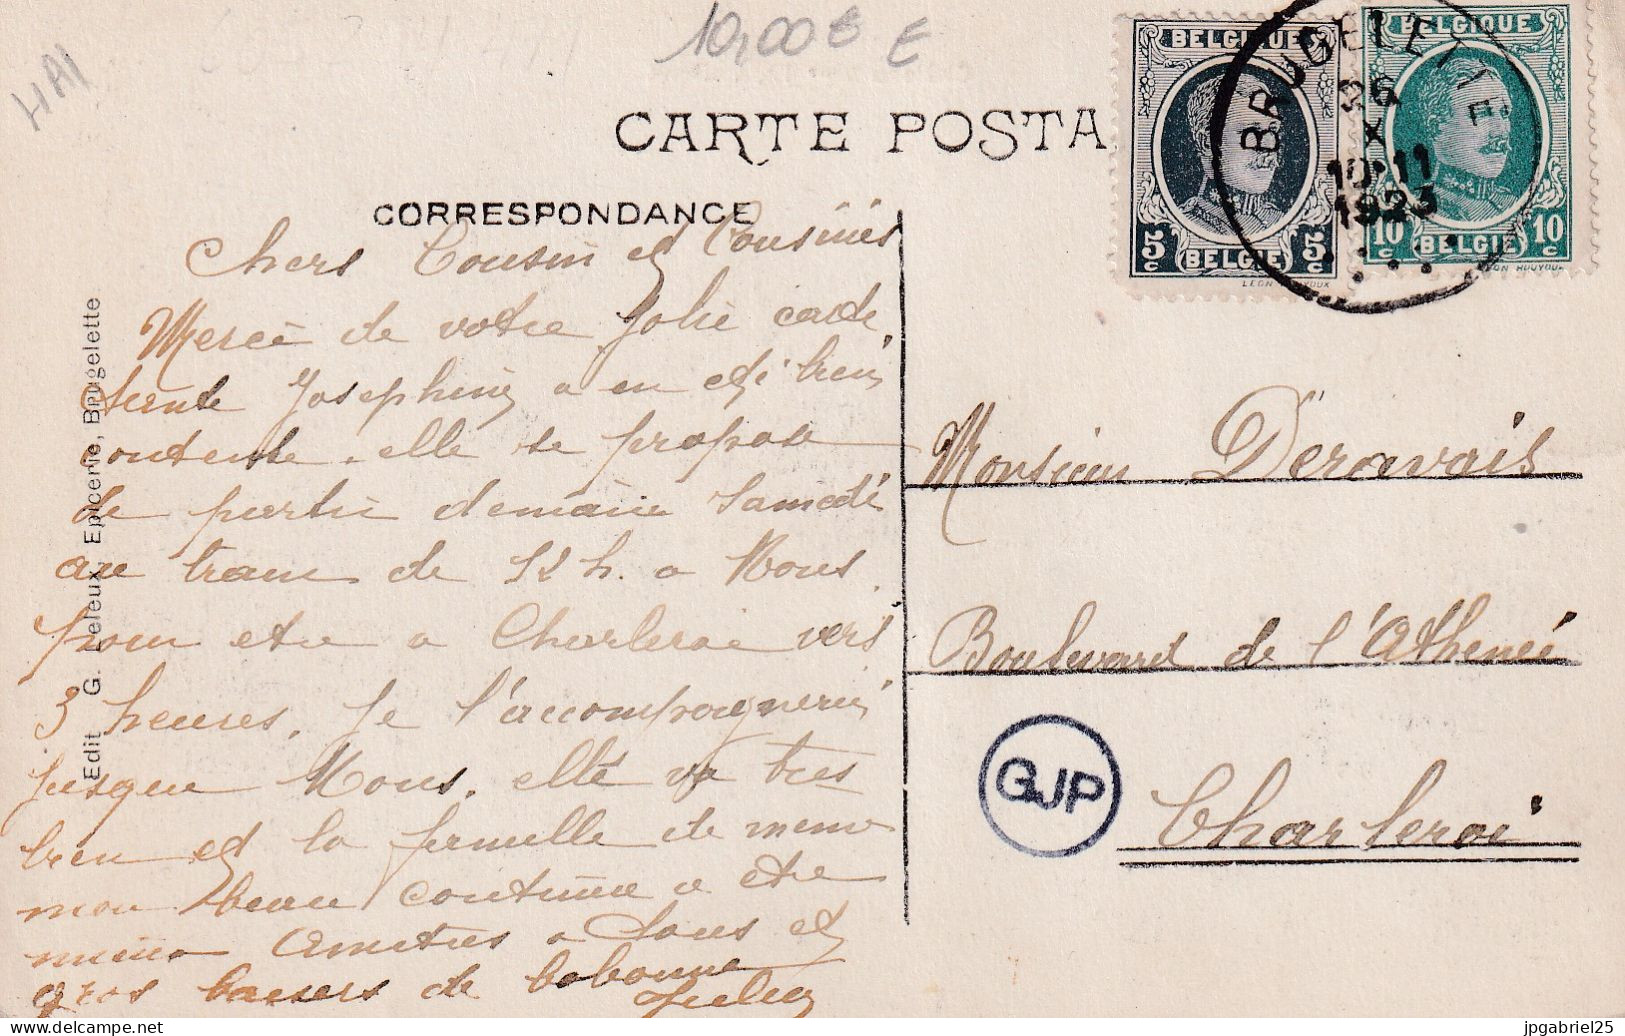 10,00 € €
HAI
CARTE POSTA
CORRESPONDANCE
BELGIQUE
5c 5c
BELGIE
BELGIQUE
10c 10c
BELGIE
BRUGELETTE
26
X
10-11
1923
Edit. G. Leleux, Epicerie, Brugelette
Chers Cousin et Cousines
Merci de votre Jolie carte
Josephine a en été bien
contente. elle se propose
de partir demain Samedi
au train de 12 h. a Mons
pour etre a Charleroi vers
3 heures. Je l'accompagnerai
jusque Mons. elle va tres
bien et la famille de meme
mon beau continue a etre
mieux Amitiés a Tous et
gros baisers de bobonne
Monsieur Deravais
Boulevard de l'Athenée
Charleroi
GJP
delcampe.net
jpgabriel25